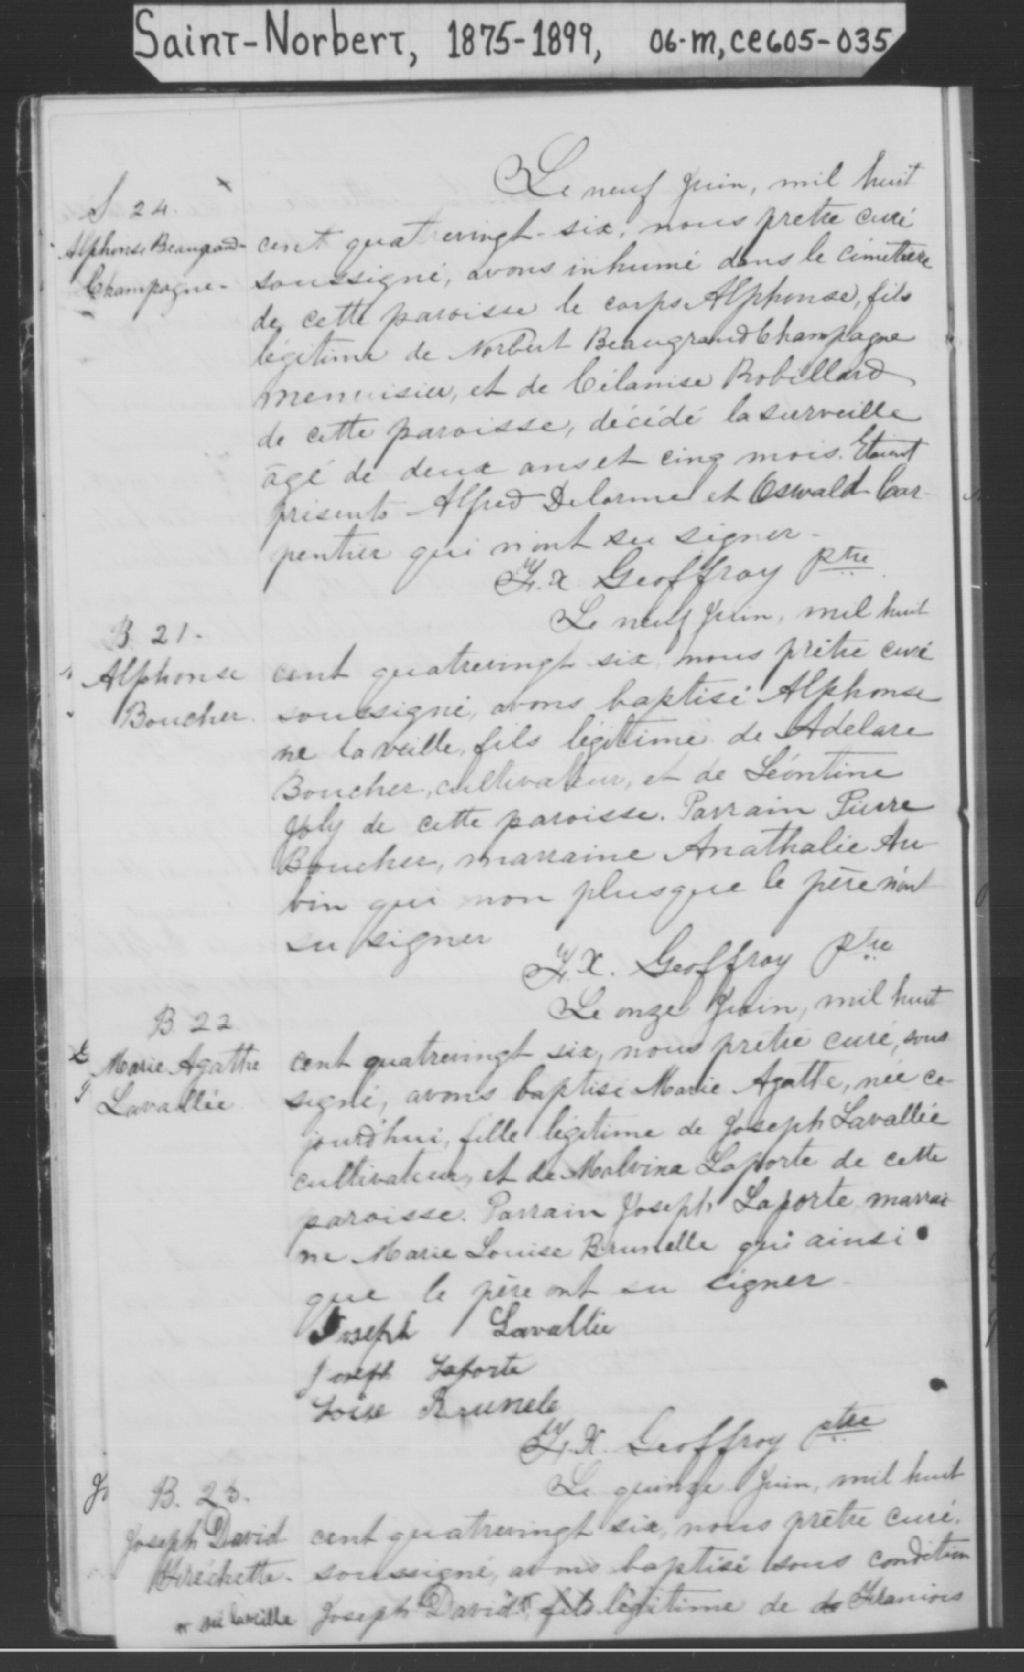 Saint-Norbert, 1875-1899, 06-M, CE605-035
S 24.
Alphonse Beaugrand-
Champagne-
Le neuf Juin, mil huit
cent quatrevingt-six, nous prêtre curé
soussigné, avons inhumé dans le cimetière
de cette paroisse le corps Alphonse, fils
légitime de Norbert Beaugrand Champagne
menuisier, et de Célanise Robillard
de cette paroisse, décédé la surveille
âgé de deux ans et cinq mois. Etaient
présents - Alfred Delorme et Oswald Car-
pentier qui n'ont su signer-
F. X Geoffroy ptre
B. 21-
Alphonse
Boucher.
Le neuf Juin, mil huit
cent quatrevingt six, nous prêtre curé
soussigné, avons baptisé Alphonse
né la veille, fils légitime de Adelare
Boucher, cultivateur, et de Léontine
Joly de cette paroisse. Parrain Pierre
Boucher, marraine Anathalie Au-
bin qui non plusque le père n'ont
su signer
F. X. Geoffroy ptre
B 22
Marie Agathe
Lavallée
Le onze Juin, mil huit
cent quatrevingt six, nous prêtre curé, sous
signé, avons baptisé Marie Agathe, née ce-
jourd'hui, fille légitime de Joseph Lavallée
cultivateur, et de Malvina Laporte de cette
paroisse. Parrain Joseph Laporte marrai
ne Marie Louise Brunelle qui ainsi
que le père ont su signer-
Joseph Lavallée
Joseph Laporte
Loise Brunele
F. X. Geoffroy ptre
B. 23.
Joseph David
Fréchette-
né la veille
Le quinze Juin, mil huit
cent quatrevingt six, nous prêtre curé,
soussigné, avons baptisé sous condition
Joseph David, fils légitime de de Francois